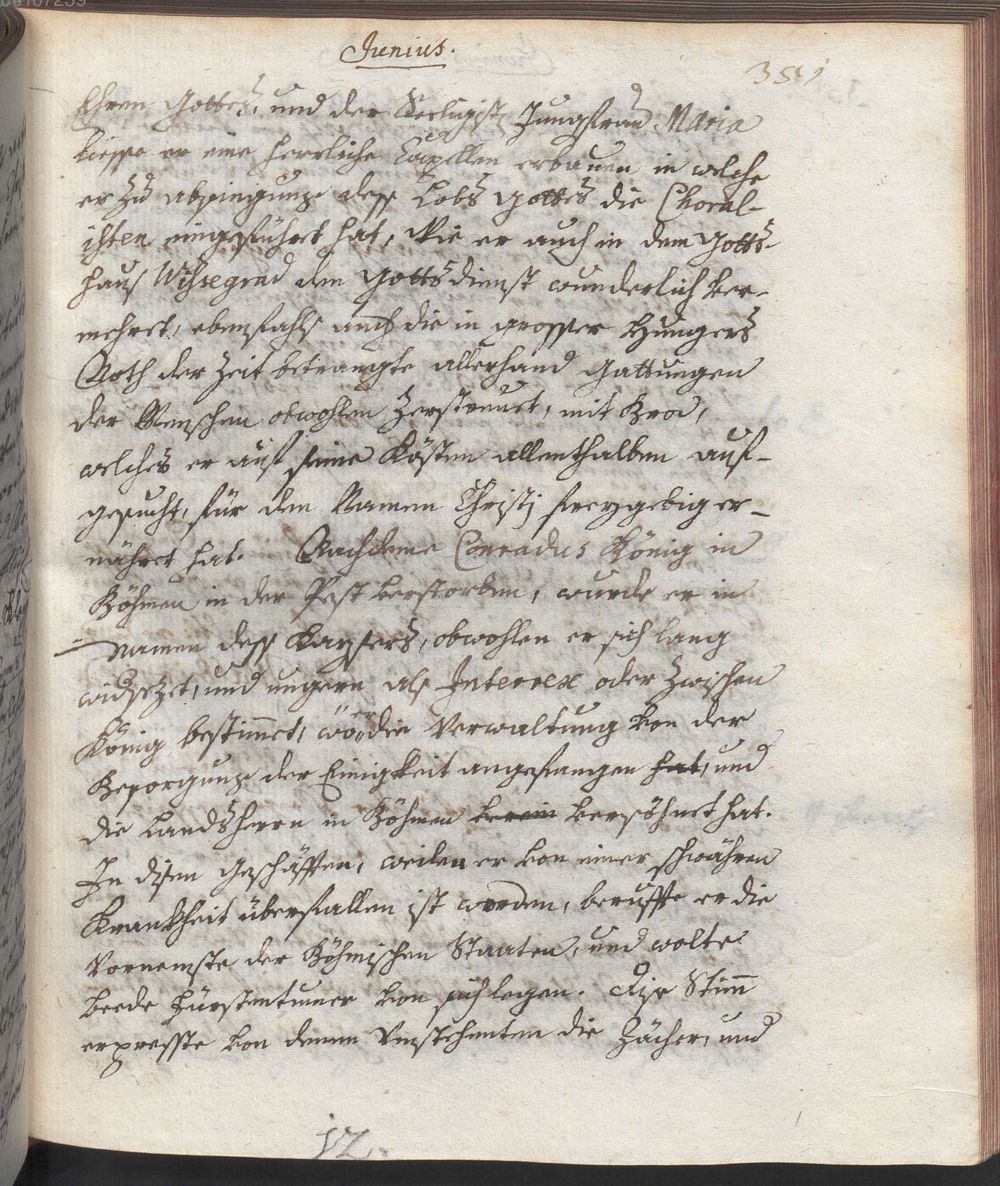 Junius.
351
Ehren Gottes, und der Seeligist. Jungfrau Maria
liesse er eine herrliche Capellen erbauen in welche
er zu absingung dess Lobs Gottes die Choral-
isten eingeführet hat, Wie er auch in dem Gotts-
haus Wissegrad den Gottsdienst wunderlich ver-
mehret, ebenfahls auch die in grosser Hungers
Noth der Zeit betrangte allerhand Gattungen
der Menschen obwohlen zerstreuet, mit Brod,
welches er auf seine Kösten allenthalben auf-
gesucht, für den Namen Christj freygebig er-
nähret hat. Nachdeme Conradus König in
Böhmen in der Pest verstorben, wurde er in
Namen dess Kaysers, obwohlen er sich lang
widsezet, und ungern als Interrex oder Zwischen
König bestimmet, wo er die Verwaltung von der
Besorgung der Einigkeit angefangen hat, und
die Landsherrn in Böhmen versöhnet hat.
In disen Geschäfften, weilen er von einer schwähren
Krankheit überfallen ist worden, beruffte er die
Vornemste der Böhmischen Staaten, und wolte
beede Fürstentumer von sich legen. Dise Stimm
erpresste von denen Umstehenten die Zächer, und